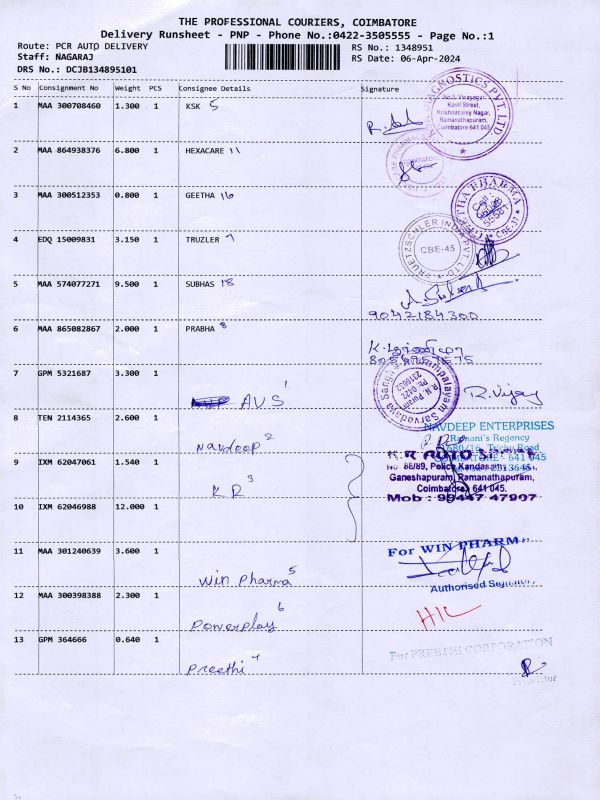 THE PROFESSIONAL COURIERS, COIMBATORE
Delivery Runsheet - PNP - Phone No.:0422-3505555 - Page No.:1
Route: PCR AUTO DELIVERY
RS No.: 1348951
Staff: NAGARAJ
RS Date: 06-Apr-2024
DRS No.: DCJB134895101
S No Consignment No Weight PCS Consignee Details Signature
1 MAA 300708460 1.300 1 KSK 5
DIAGNOSTICS PVT. LTD.
No.1, Vijayagar
Kovil Street,
Krishnasamy Nagar,
Ramanathapuram,
Coimbatore-641 045.
2 MAA 864938376 6.800 1 HEXACARE 11
3 MAA 300512353 0.800 1 GEETHA 16
PHARMA
CBE-
4 EDQ 15009831 3.150 1 TRUZLER 7
TRUETZSCHLER INDIA PVT. LTD.
CBE-45
5 MAA 574077271 9.500 1 SUBHAS 18
9042184300
6 MAA 865082867 2.000 1 PRABHA 8
7 GPM 5321687 3.300 1
AVS 1
Sarvodaya Sangh
R.N. Puram
R. Vijay
8 TEN 2114365 2.600 1
Navdeep 2
NAVDEEP ENTERPRISES
Ramani's Regency
Trichy Road
COIMBATORE - 641 045
9 IXM 62047061 1.540 1
K R 3
K R AUTO
No 88/89, Police Kandasamy
Ganeshapuram, Ramanathapuram,
Coimbatore - 641 045.
Mob : 99447 47907
10 IXM 62046988 12.000 1
11 MAA 301240639 3.600 1
Win Pharma 5
For WIN PHARMA
Authorised
12 MAA 300398388 2.300 1
Powerplay 6
13 GPM 364666 0.640 1
Preethi 4
For PREETHI CORPORATION